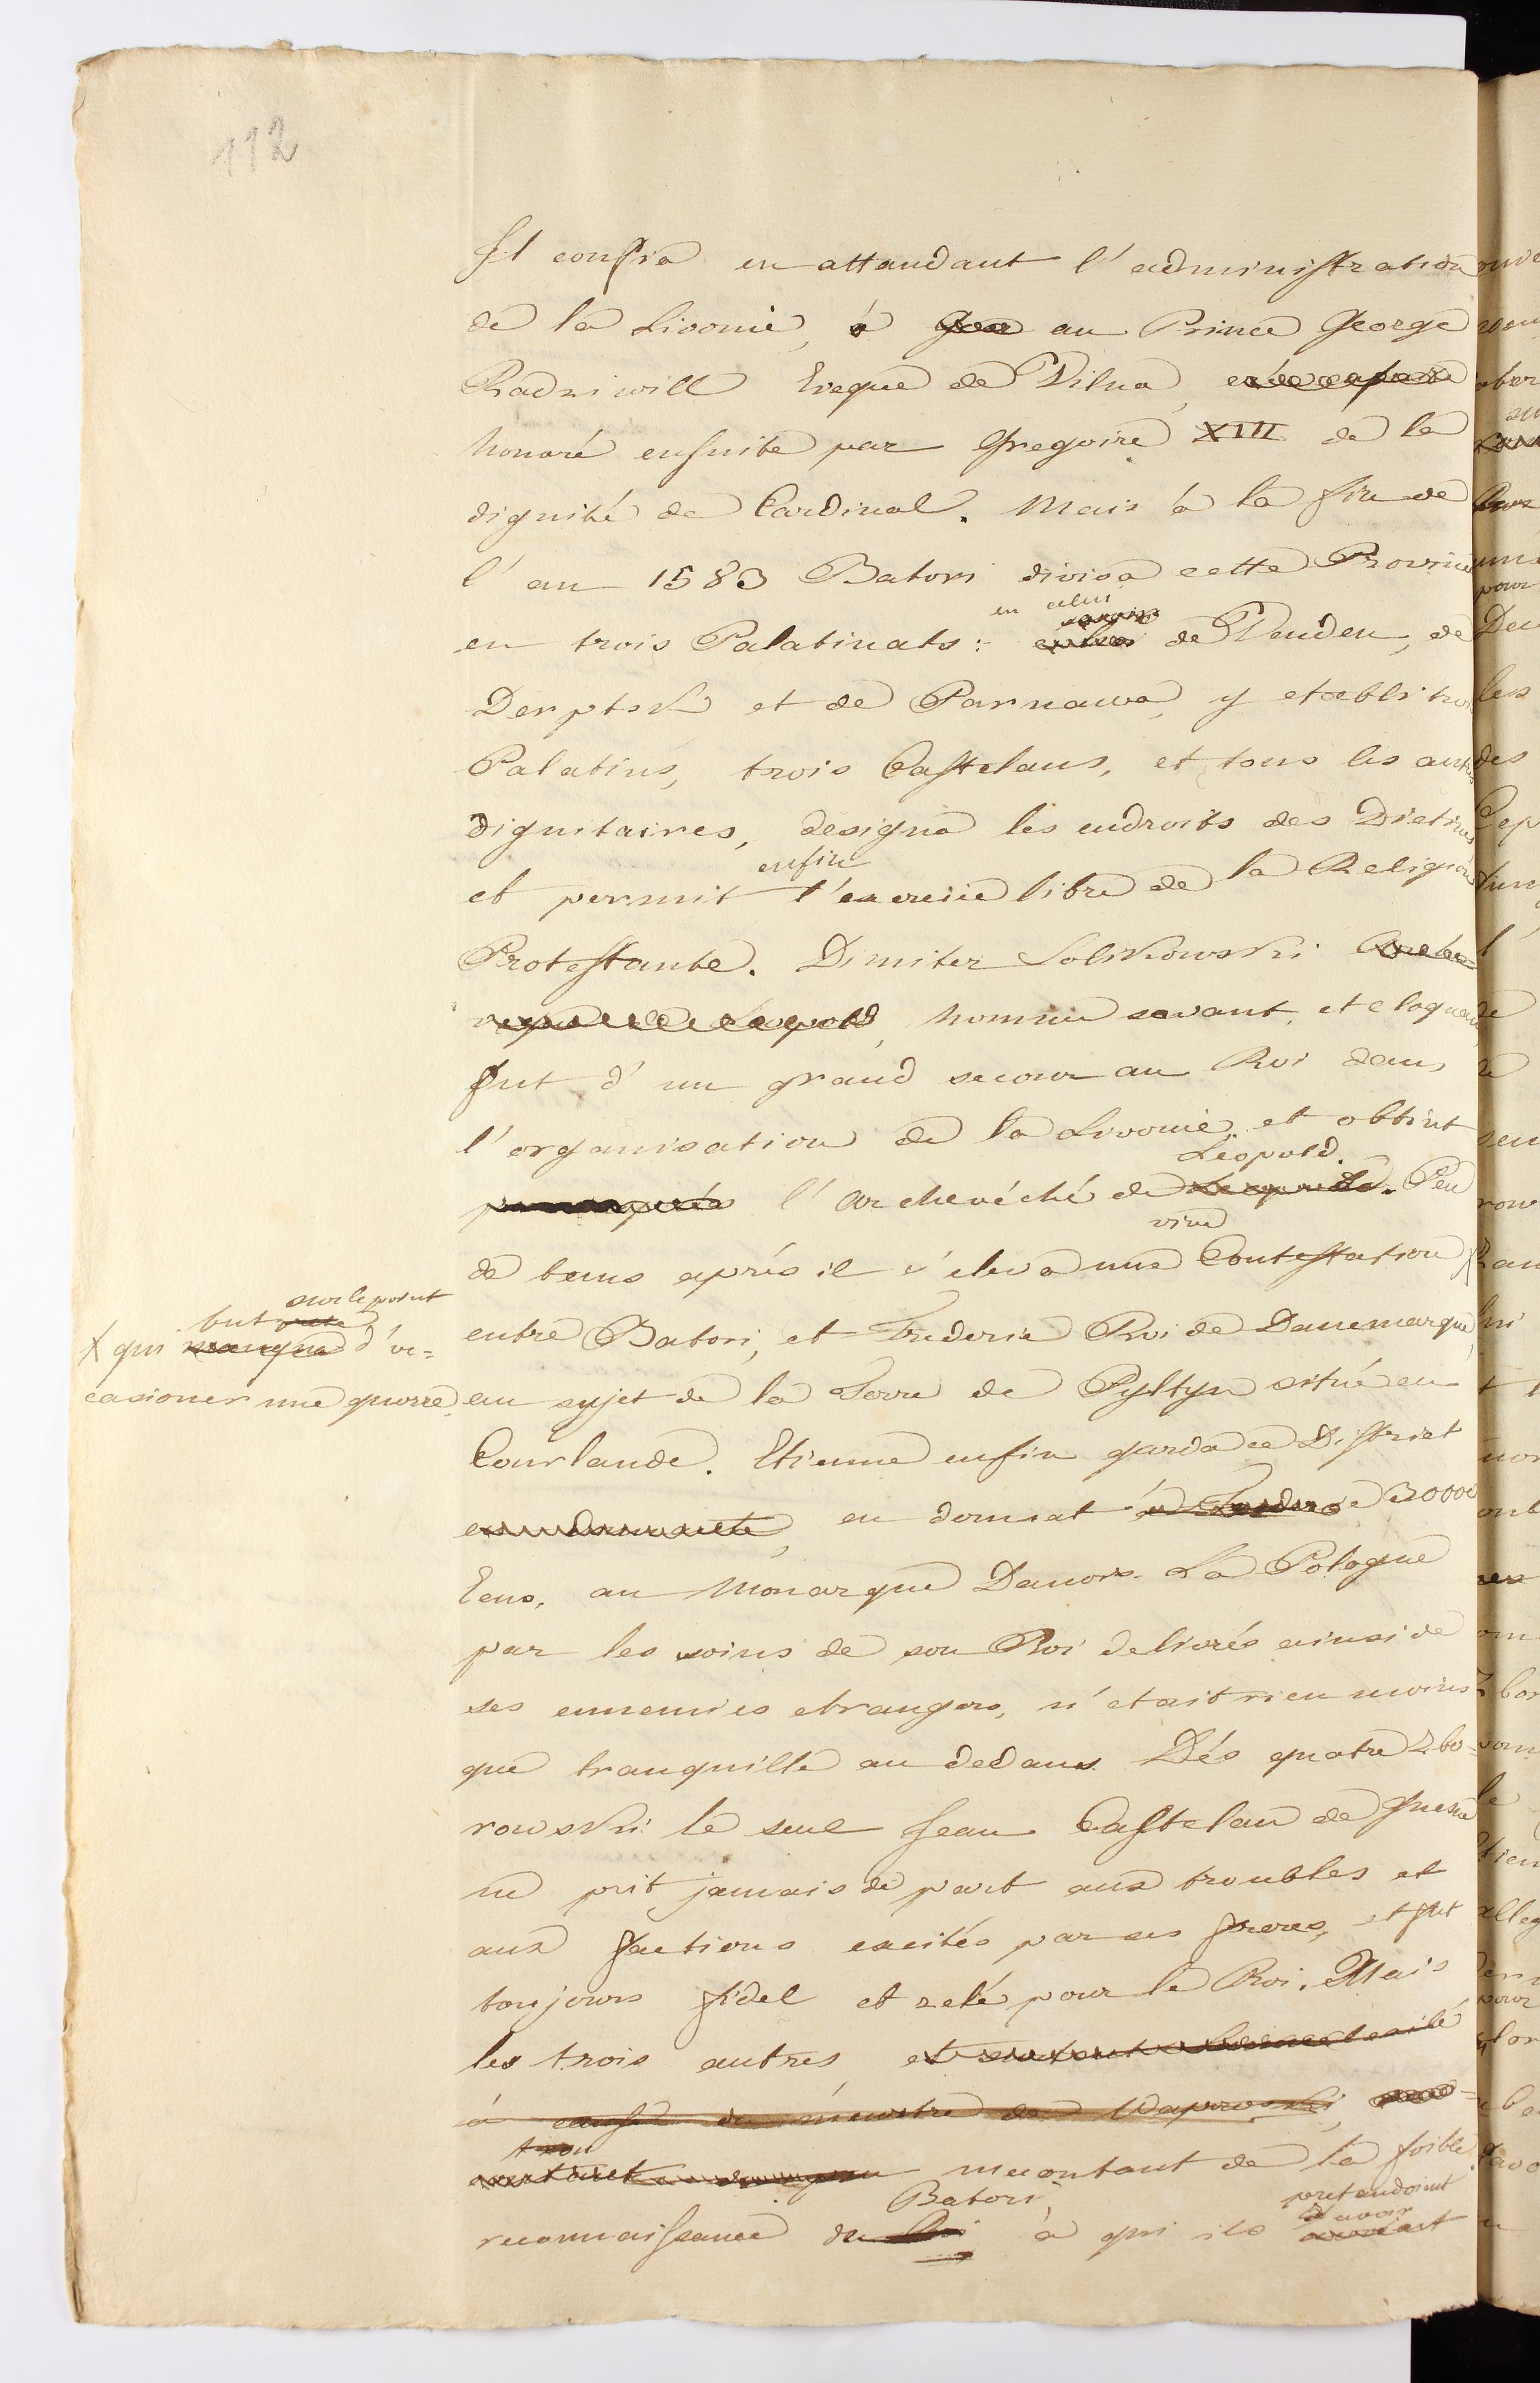 112
Il confia en attandant l'administration
de la Livonie, à au Prince George
Radziwill Eveque de Vilna,
honoré ensuite par Gregoire XIII de la
dignité de Cardinal. Mais à la fin de
l'an 1583 Batori divisa cette Province
en celui
en trois Palatinats: de Venden, de
Derptsk et de Parnawa, y etablit trois
Palatins, trois Castelans, et tous les autres
dignitaires, designa les endroits des Dietines
enfin
et permit l'exercice libre de la Religion
Protestante. Dimiter Solikowski Arche=
veque de Léopold, homme savant, et eloquent,
fut d'un grand secour au Roi dans
l'organisation de la Livonie, et obtint
Léopold.
l'Archevéché de Peu
vive
de tems aprés il s'eleva une Contestation X
entre Batori, et Frederic Roi de Danemarque,
au sujet de la Terre de Pyltyn située en
Courlande. Etienne enfin garda ce District
en donnant à Frederic 30000
Ecus, au Monarque Danois. La Pologne
par les soins de son Roi delivrés ainsi de
ses ennemies etrangers, n'etait rien moins
que tranquille au dedans. Dés quatre Zbo=
rowski le seul Jean Castelan de Gnesne
ne prit jamais de part aux troubles et
aux factions excités par ses freres, et fut
toujours fidel et zelé pour le Roi. Mais
les trois autres, et surtout exilé
à cause du meurtre de Wapowski,
mecontant de la foible
Batori, pretandoient
d'avoir
reconnaissance du Roi à qui ils avoient
sur le point
but
X qui manqua d'oc=
casioner une guerre